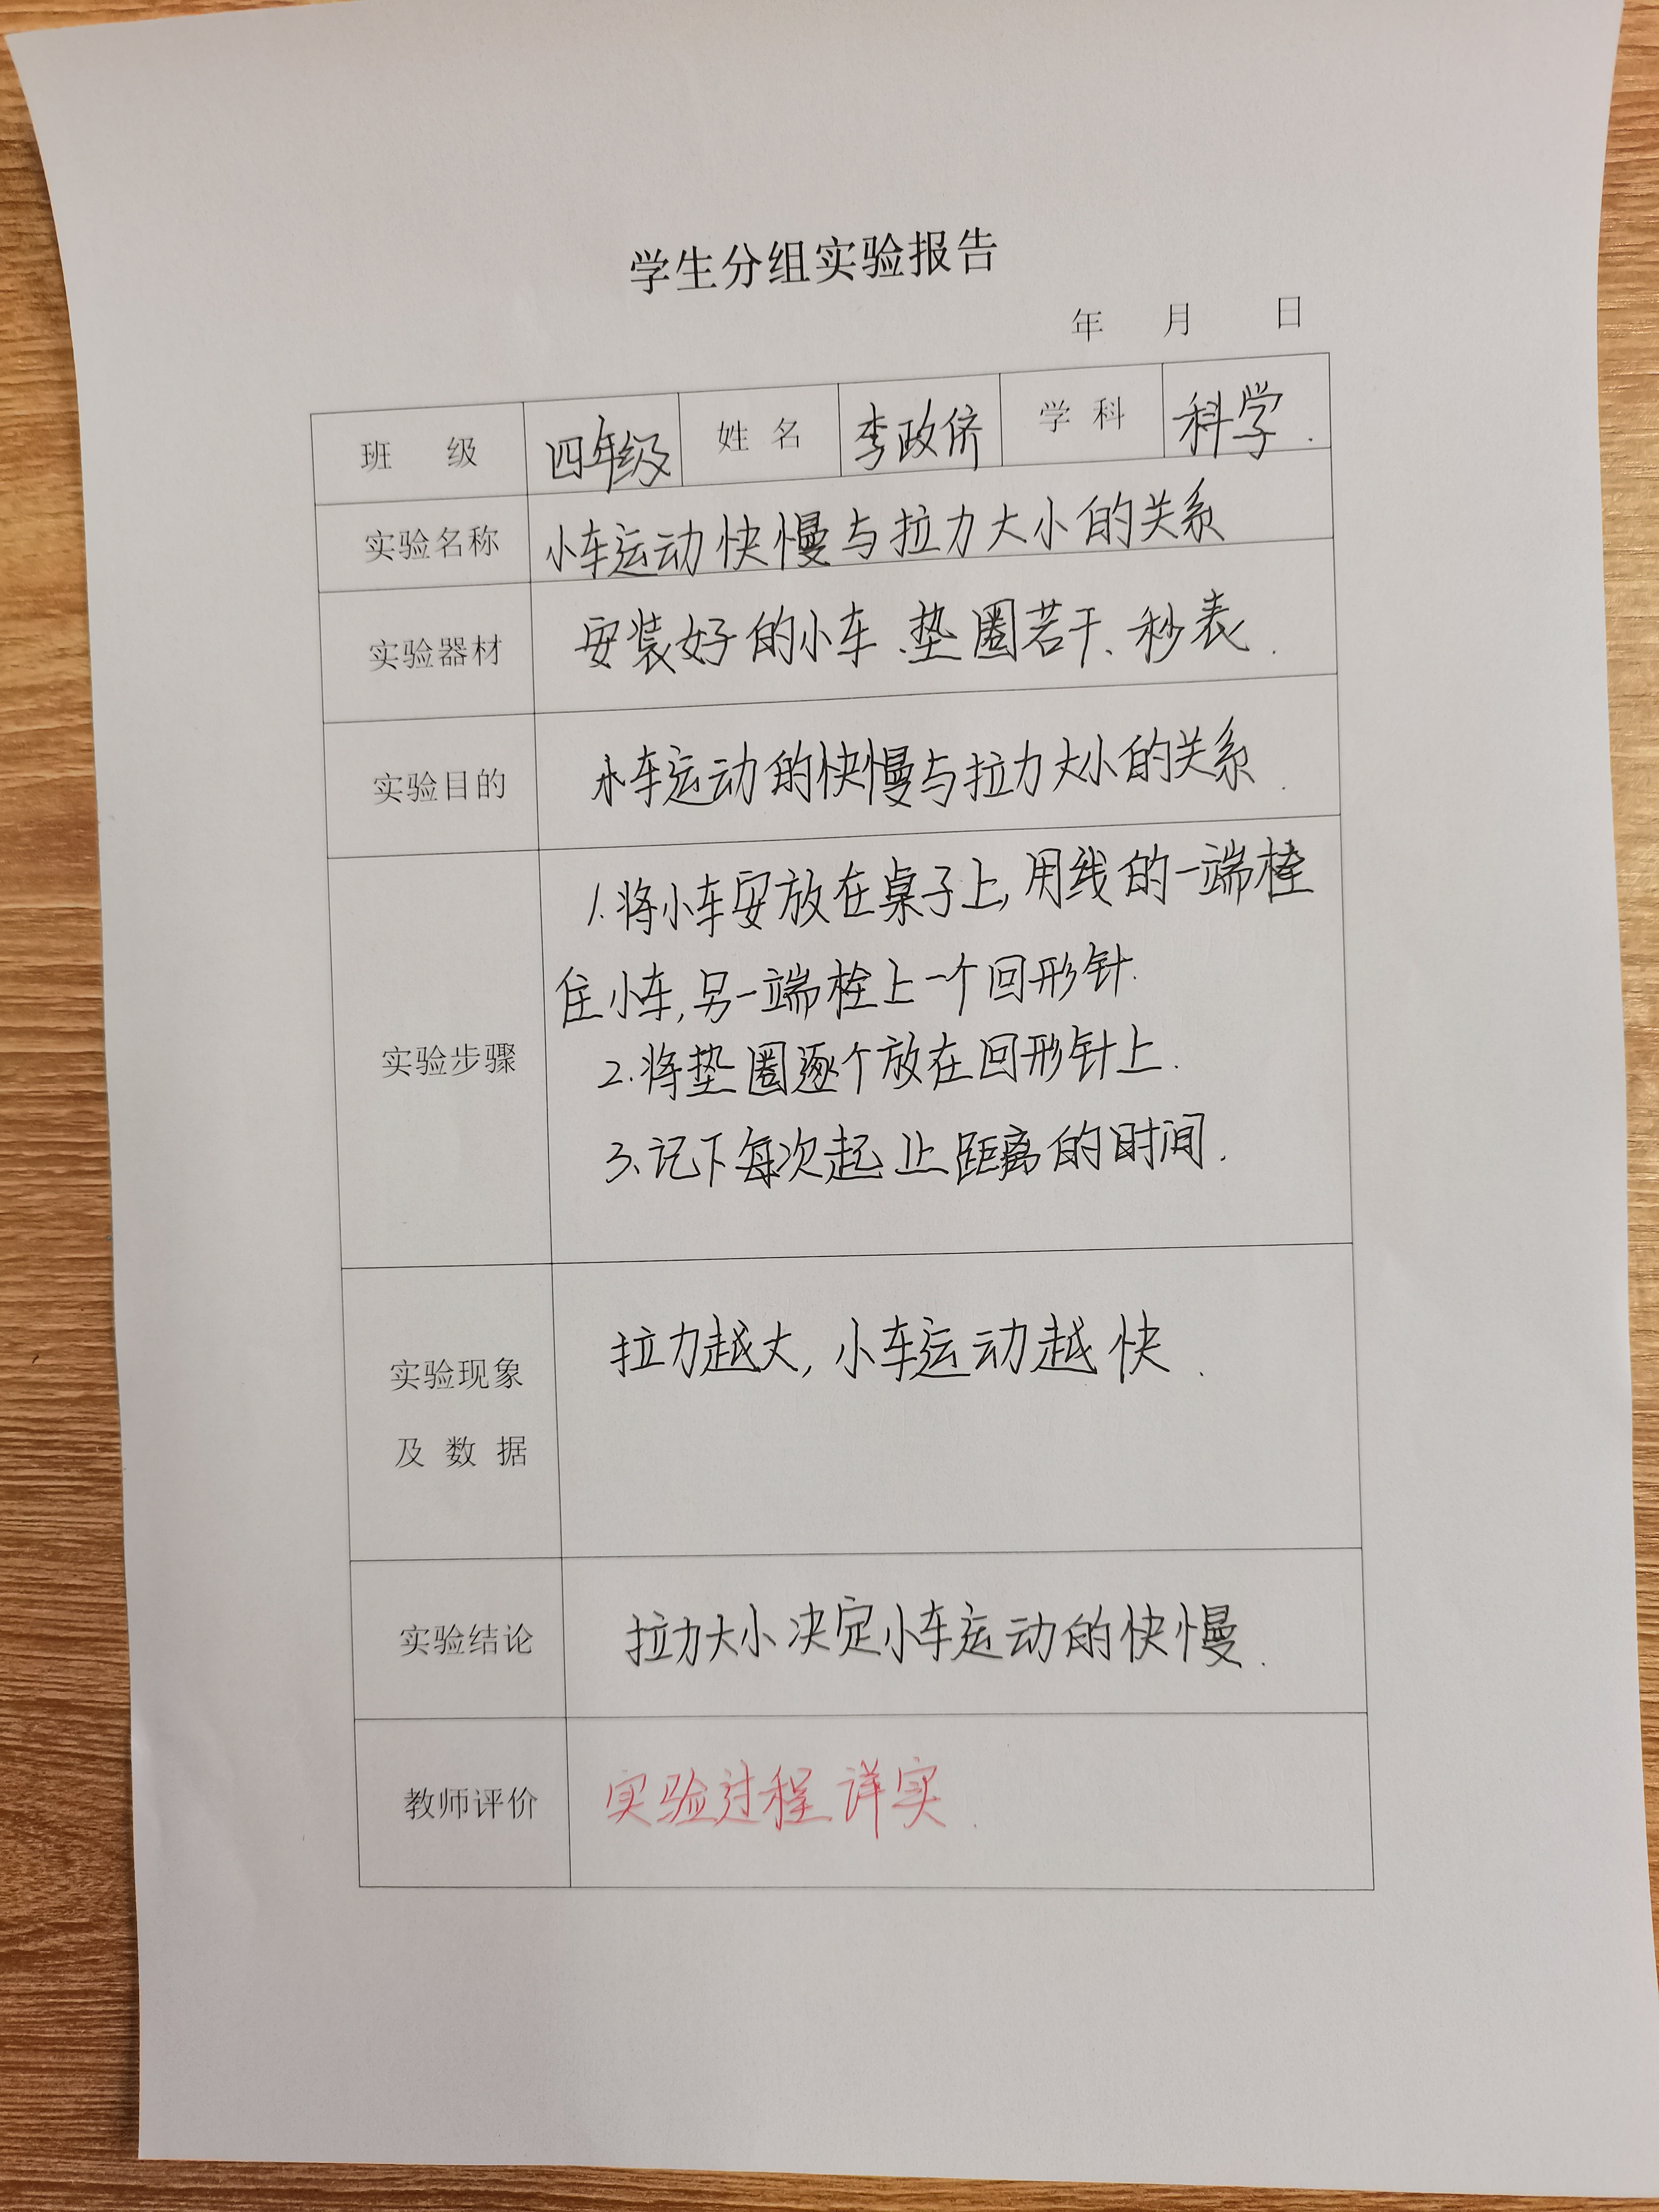 学生分组实验报告
年 月 日
班 级 四年级 姓名 李政侪 学科 科学.
实验名称 小车运动快慢与拉力大小的关系
实验器材 安装好的小车、垫圈若干、秒表.
实验目的 小车运动的快慢与拉力大小的关系.
1.将小车安放在桌子上,用线的一端栓
住小车,另一端栓上一个回形针.
实验步骤 2.将垫圈逐个放在回形针上.
3、记下每次起止距离的时间.
实验现象 拉力越大,小车运动越快.
及数据
实验结论 拉力大小决定小车运动的快慢.
教师评价 实验过程详实.